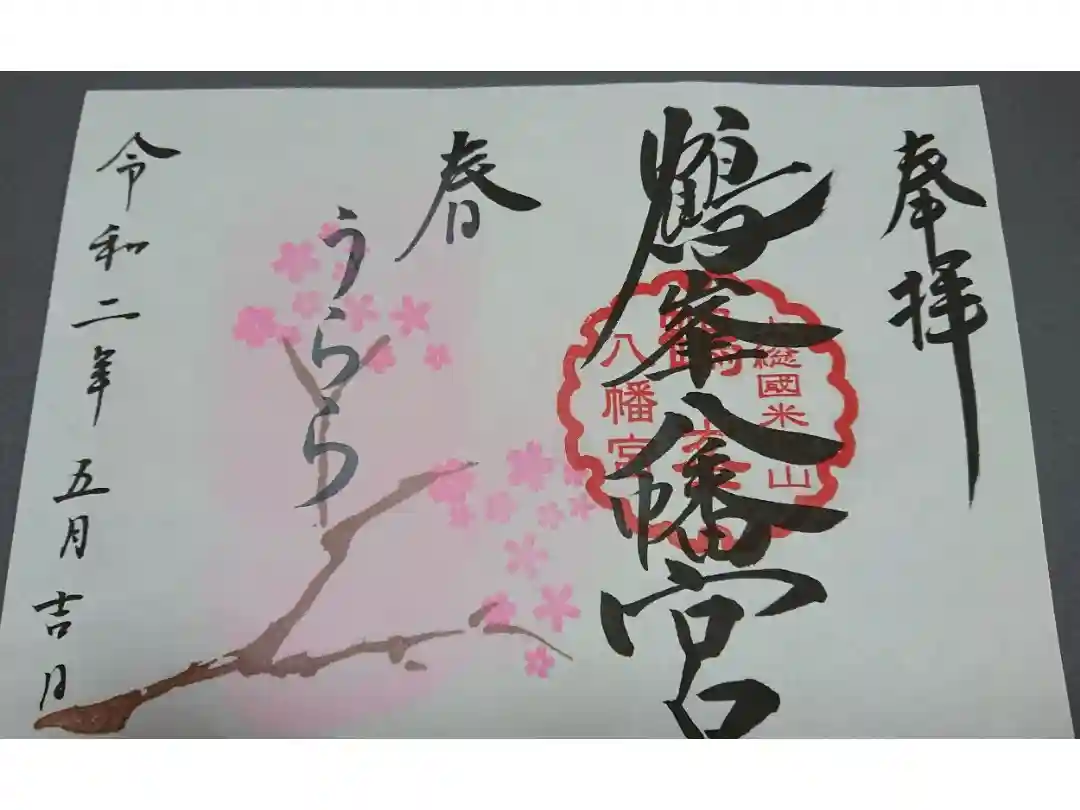 奉拝
鶴峯八幡宮
総國米
山
八幡宮
春
うらら
令和二年 五月 吉日